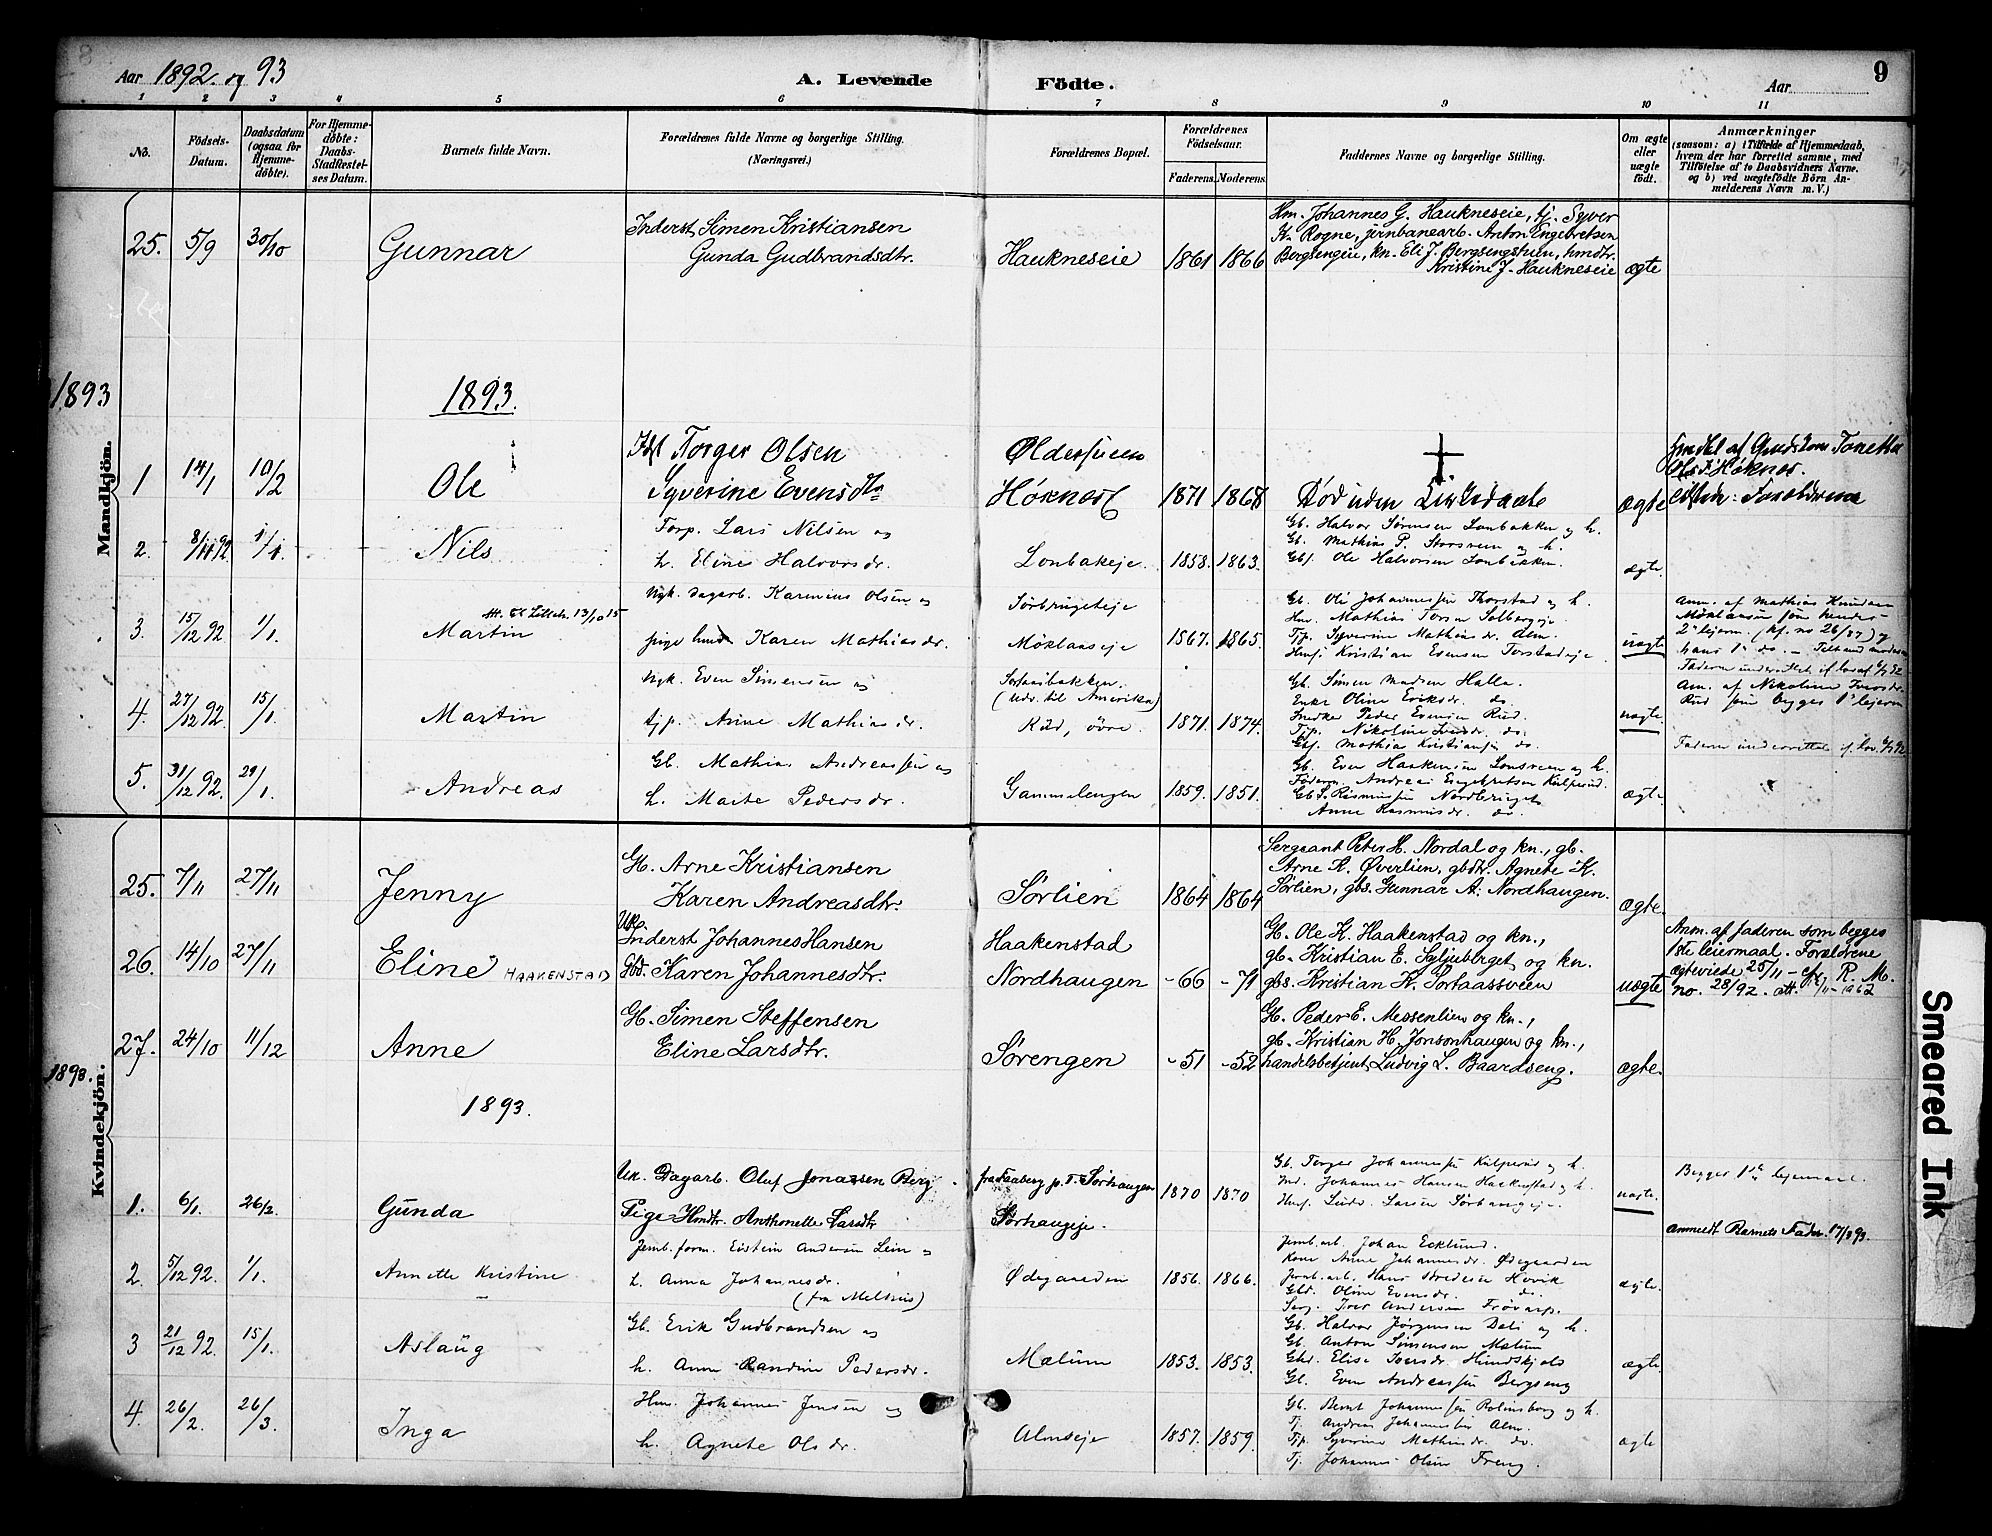 8
Aar 1892. og 93
A. Levende
Födte.
Aar
9
1 2 3 4 5 6 7 8 9 10 11
No.
Födsels-Datum.
Daabsdatum (ogsaa for Hjemme-döbte).
For Hjemme-döbte: Daabs-Stadfæstel-ses Datum.
Barnets fulde Navn.
Forældrenes fulde Navne og borgerlige Stilling. (Næringsvei.)
Forældrenes Bopæl.
Forældrenes Födselsaar.
Faderens. Moderens.
Faddernes Navne og borgerlige Stilling.
Om ægte eller uægte födt.
Anmærkninger
(saasom: a) i Tilfælde af Hjemmedaab,
hvem der har forrettet samme, med
Tilföielse af to Daabsvidners Navne.
og b) ved uægtefödte Börn An-
melderens Navn m. V.)
Mandkjön.
25. 5/9 30/10 Gunnar
Inderst Simen Kristiansen
Gunda Gudbrandsdtr.
Haukneseie 1861 1866
Hm. Johannes G. Haukneseie, tj. Syver
K. Rogne, jernbanearb. Anton Engebretsen
Bergsengeie, kn. Eli J. Bergsengstuen, hmdtr.
Kristine J. Haukneseie
ægte
1893
1893.
1 14/1 10/2 Ole
Torger Olsen
Syverine Evensdtr
Høknes 1871 1868
Død uden
ægte
2. 8/11 92. 1/1. Nils
Forp. Lars Nilsen og
h. Eline Halvorsdr.
Lonbakeje 1858. 1863.
Gb. Halvor Sørensen Lonbakken og h.
Gb. Mathias P. Storsveen og h.
Gbf. Ole Halvorsen Lonbakken.
ægte.
3. 15/12 92. 1/1. Martin
Att. til Lilleh. 13/10 15
Ugk. dagarb. Karenius Olsen og
pige Karen Mathiasdr.
Sørbrugeteje
Møklaaseje 1867. 1865.
Gb. Ole Johannessen Thorstad og h.
Hm. Mathias Torsen Solbergeje
Tjp. Syverine Mathiasdr. Alm.
Kristian Evensen Torstadeje
uægte
Anm. af Mathias Knudsen
4. 27/12 92. 15/1. Martin
Ugk. Even Simensen og
tjp. Anne Mathiasdr.
(Udv. til Amerika)
Rud, övre. 1871. 1874.
Gb. Simen Madsen Halla.
Enke Oline Eriksdr. do.
Snedker Peder Evensen Rud.
Tjp. Nikoline Iversdr. do.
Gbf. Mathia Kristiansen do.
uægte
Faderen underrettet if. lov af 6/7 92
Am. af Nikoline Iversdr.
Rud som begges 1ste lejerm
Faderen underrettet if. lov. 6/7 92.
5. 31/12 92. 29/1. Andreas
Gb. Mathias Andreassen og
h. Marte Pedersdr.
Gammelengen 1859. 1851.
Gb. Even Haakensen Lonsveen og h.
Andreas Engebretsen Kulperud.
Gb. S. Rasmussen Nordbruget
Anne Rasmusdr. do.
ægte.
Kvindekjön.
25. 7/11 27/11 Jenny
Gb. Arne Kristiansen
Karen Andreasdtr.
Sørlien 1864 1864
Sergeant Peter H. Nordal og kn., gb.
Arne K. Øverlien, gbdtr. Agnete K.
Sørlien, gbs. Gunnar A. Nordhaugen.
ægte.
26. 14/10 27/11 Eline HAAKENSTAD
Uk. Inderst Johannes Hansen
Gbd. Karen Johannesdtr.
Haakenstad
Nordhaugen -66 -71
Gb. Ole K. Haakenstad og kn.,
gb. Kristian E. Syljuberget og kn.
gbs. Kristian K. Portaassveen
uægte
Anm. af faderen som begges
1ste leiermaal. Forældrene
ægteviede 25/11 - cfr. R. M.
no. 28/92. att. /11-1962
27. 24/10 11/12 Anne
Gb. Simen Steffensen
Eline Larsdtr.
Sørengen -51 -52
Gb. Peder E. Messenlien og kn.,
gb. Kristian H. Jonsonhaugen og kn.,
handelsbetjent Ludvig L. Baardseng.
ægte.
1893.
1893.
1. 6/1. 26/2. Gunda
Uk. Dagarb. Oluf Jonassen Berg.
Pige Hmdtr. Anthonette Larsdtr
fra Faaberg p.T. Sørhaugen
Sørhaugeje. 1870 1870
Gb. Torger Johannessen Kulperud og h.
Ind. Johannes Hansen Haakenstad og h.
Ludv. Larsen Sørhaugeje.
uægte.
Begges 1ste lejermaal.
anmeldt Barnets Fader 17/2 93.
2. 5/12 92. 1/1. Annette Kristine
Jernb.form. Eistein Andersen Lein og
h. Anna Johannesdr.
(fra Melhus)
Ødegaarden 1856. 1866.
Jernb.arb. Johan Ecklund.
Kone Anne Johannesdr. Ødegaarden
Jernb.arb. Hans Hovik
Gbd. Oline Evensdr. do.
Serg. Iver Andersen Frövarp.
ægte.
3 21/12 92. 15/1. Aslaug
Gb. Erik Gudbrandsen og
h. Anne Randine Pedersdr.
Mælum 1853. 1853.
Gb. Halvor Jørgensen Dali og h.
Gb. Anton Simensen Mælum
Gbd. Elise Iversdr. Hundskjols
Gb. Even Andreassen Bergseng
ægte
4. 26/2. 26/3. Inga
Hm. Johannes Jensen og
h. Agnete Olsdr.
Almseje 1857. 1859.
Gb. Bernt Johannessen Rolinsborg og h.
Tj. Andreas Johannessen Alm.
Tjp. Syverine Mathiasdr. do.
Tj. Johannes Olsen Freng.
ægte
Smeared Ink